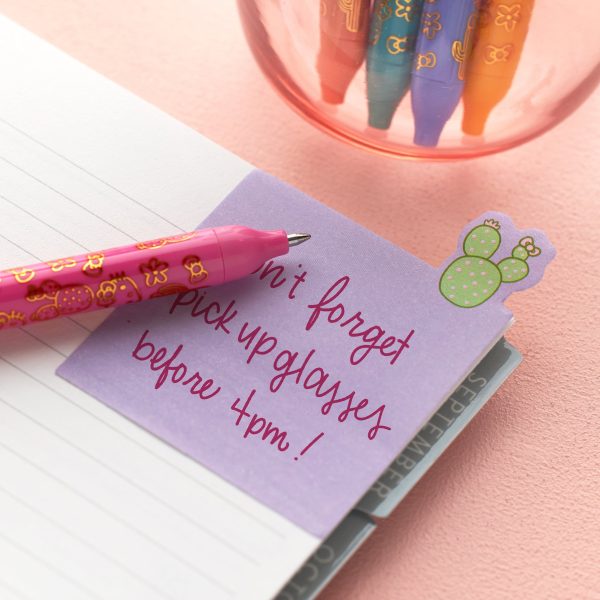 Don't forget
pick up glasses
before 4pm!
SEPTEMBER
OCTO